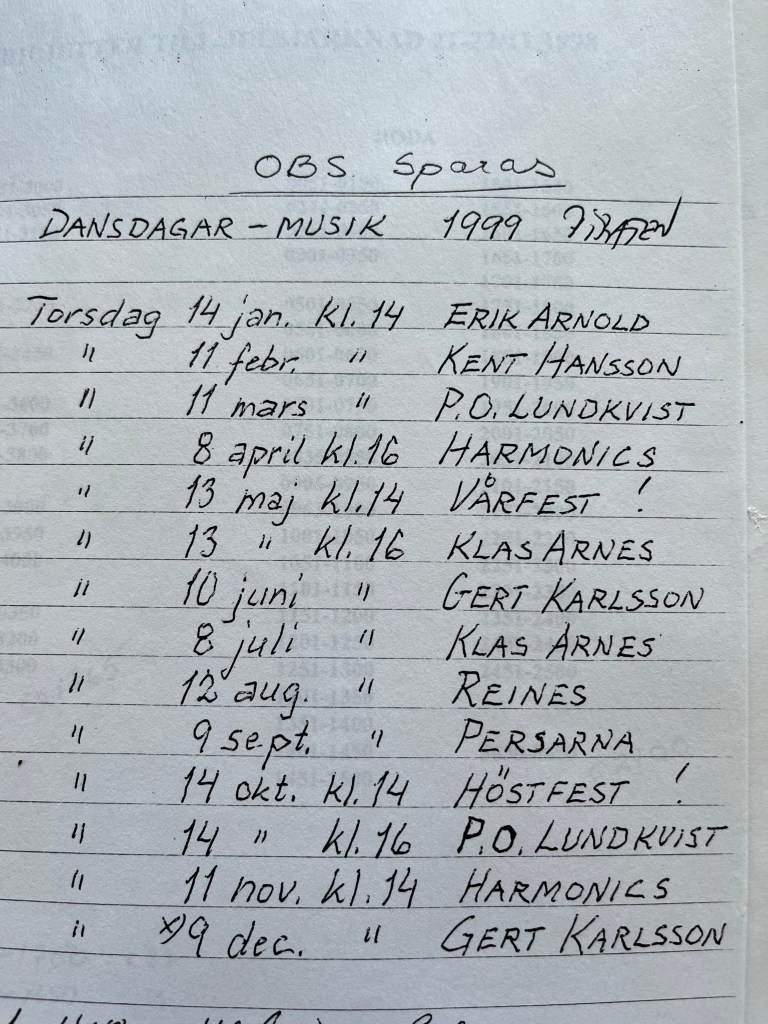 OBS. Sparas
DANSDAGAR - MUSIK 1999
Torsdag 14 jan. kl. 14 ERIK ARNOLD
" 11 febr. " KENT HANSSON
" 11 mars " P.O. LUNDKVIST
" 8 april kl. 16 HARMONICS
" 13 maj kl. 14 VÅRFEST !
" 13 " kl. 16 KLAS ARNES
" 10 juni " GERT KARLSSON
" 8 juli " KLAS ARNES
" 12 aug. " REINES
" 9 sept. " PERSARNA
" 14 okt. kl. 14 HÖSTFEST !
" 14 " kl. 16 P.O. LUNDKVIST
" 11 nov. kl. 14 HARMONICS
" x) 9 dec. " GERT KARLSSON